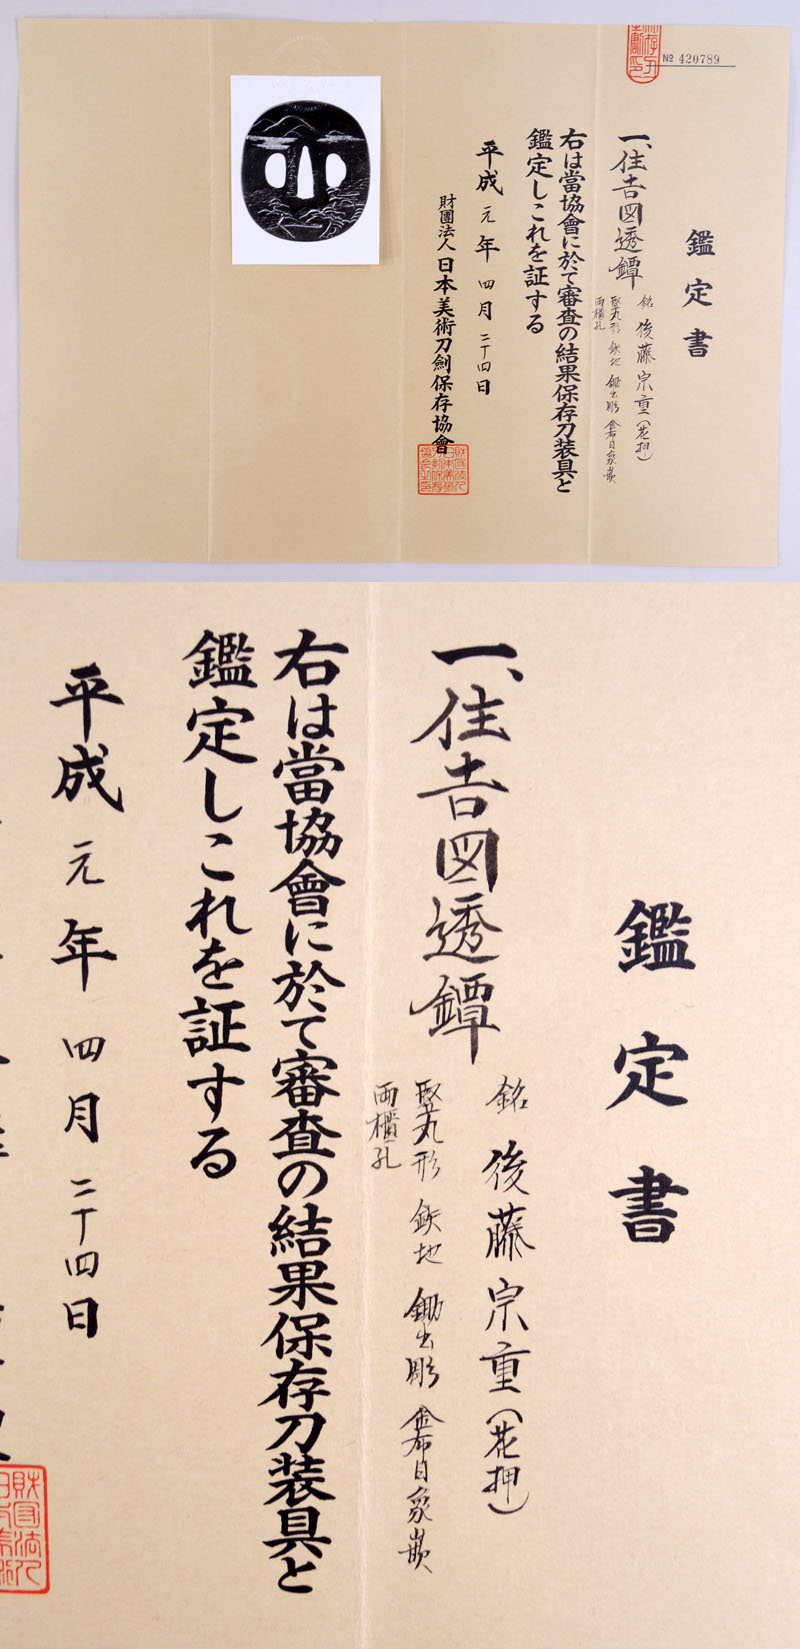 № 420789
鑑定書
一、住吉図透鐔
銘 後藤宗重(花押)
竪丸形 鉄地 鋤出彫 金布目象嵌
両櫃孔
右は當協會に於て審査の結果保存刀装具と
鑑定しこれを証する
平成元年四月二十四日
財團法人日本美術刀劍保存協會
鑑定書
一、住吉図透鐔
銘 後藤宗重(花押)
竪丸形 鉄地 鋤出彫 金布目象嵌
両櫃孔
右は當協會に於て審査の結果保存刀装具と
鑑定しこれを証する
平成元年四月二十四日